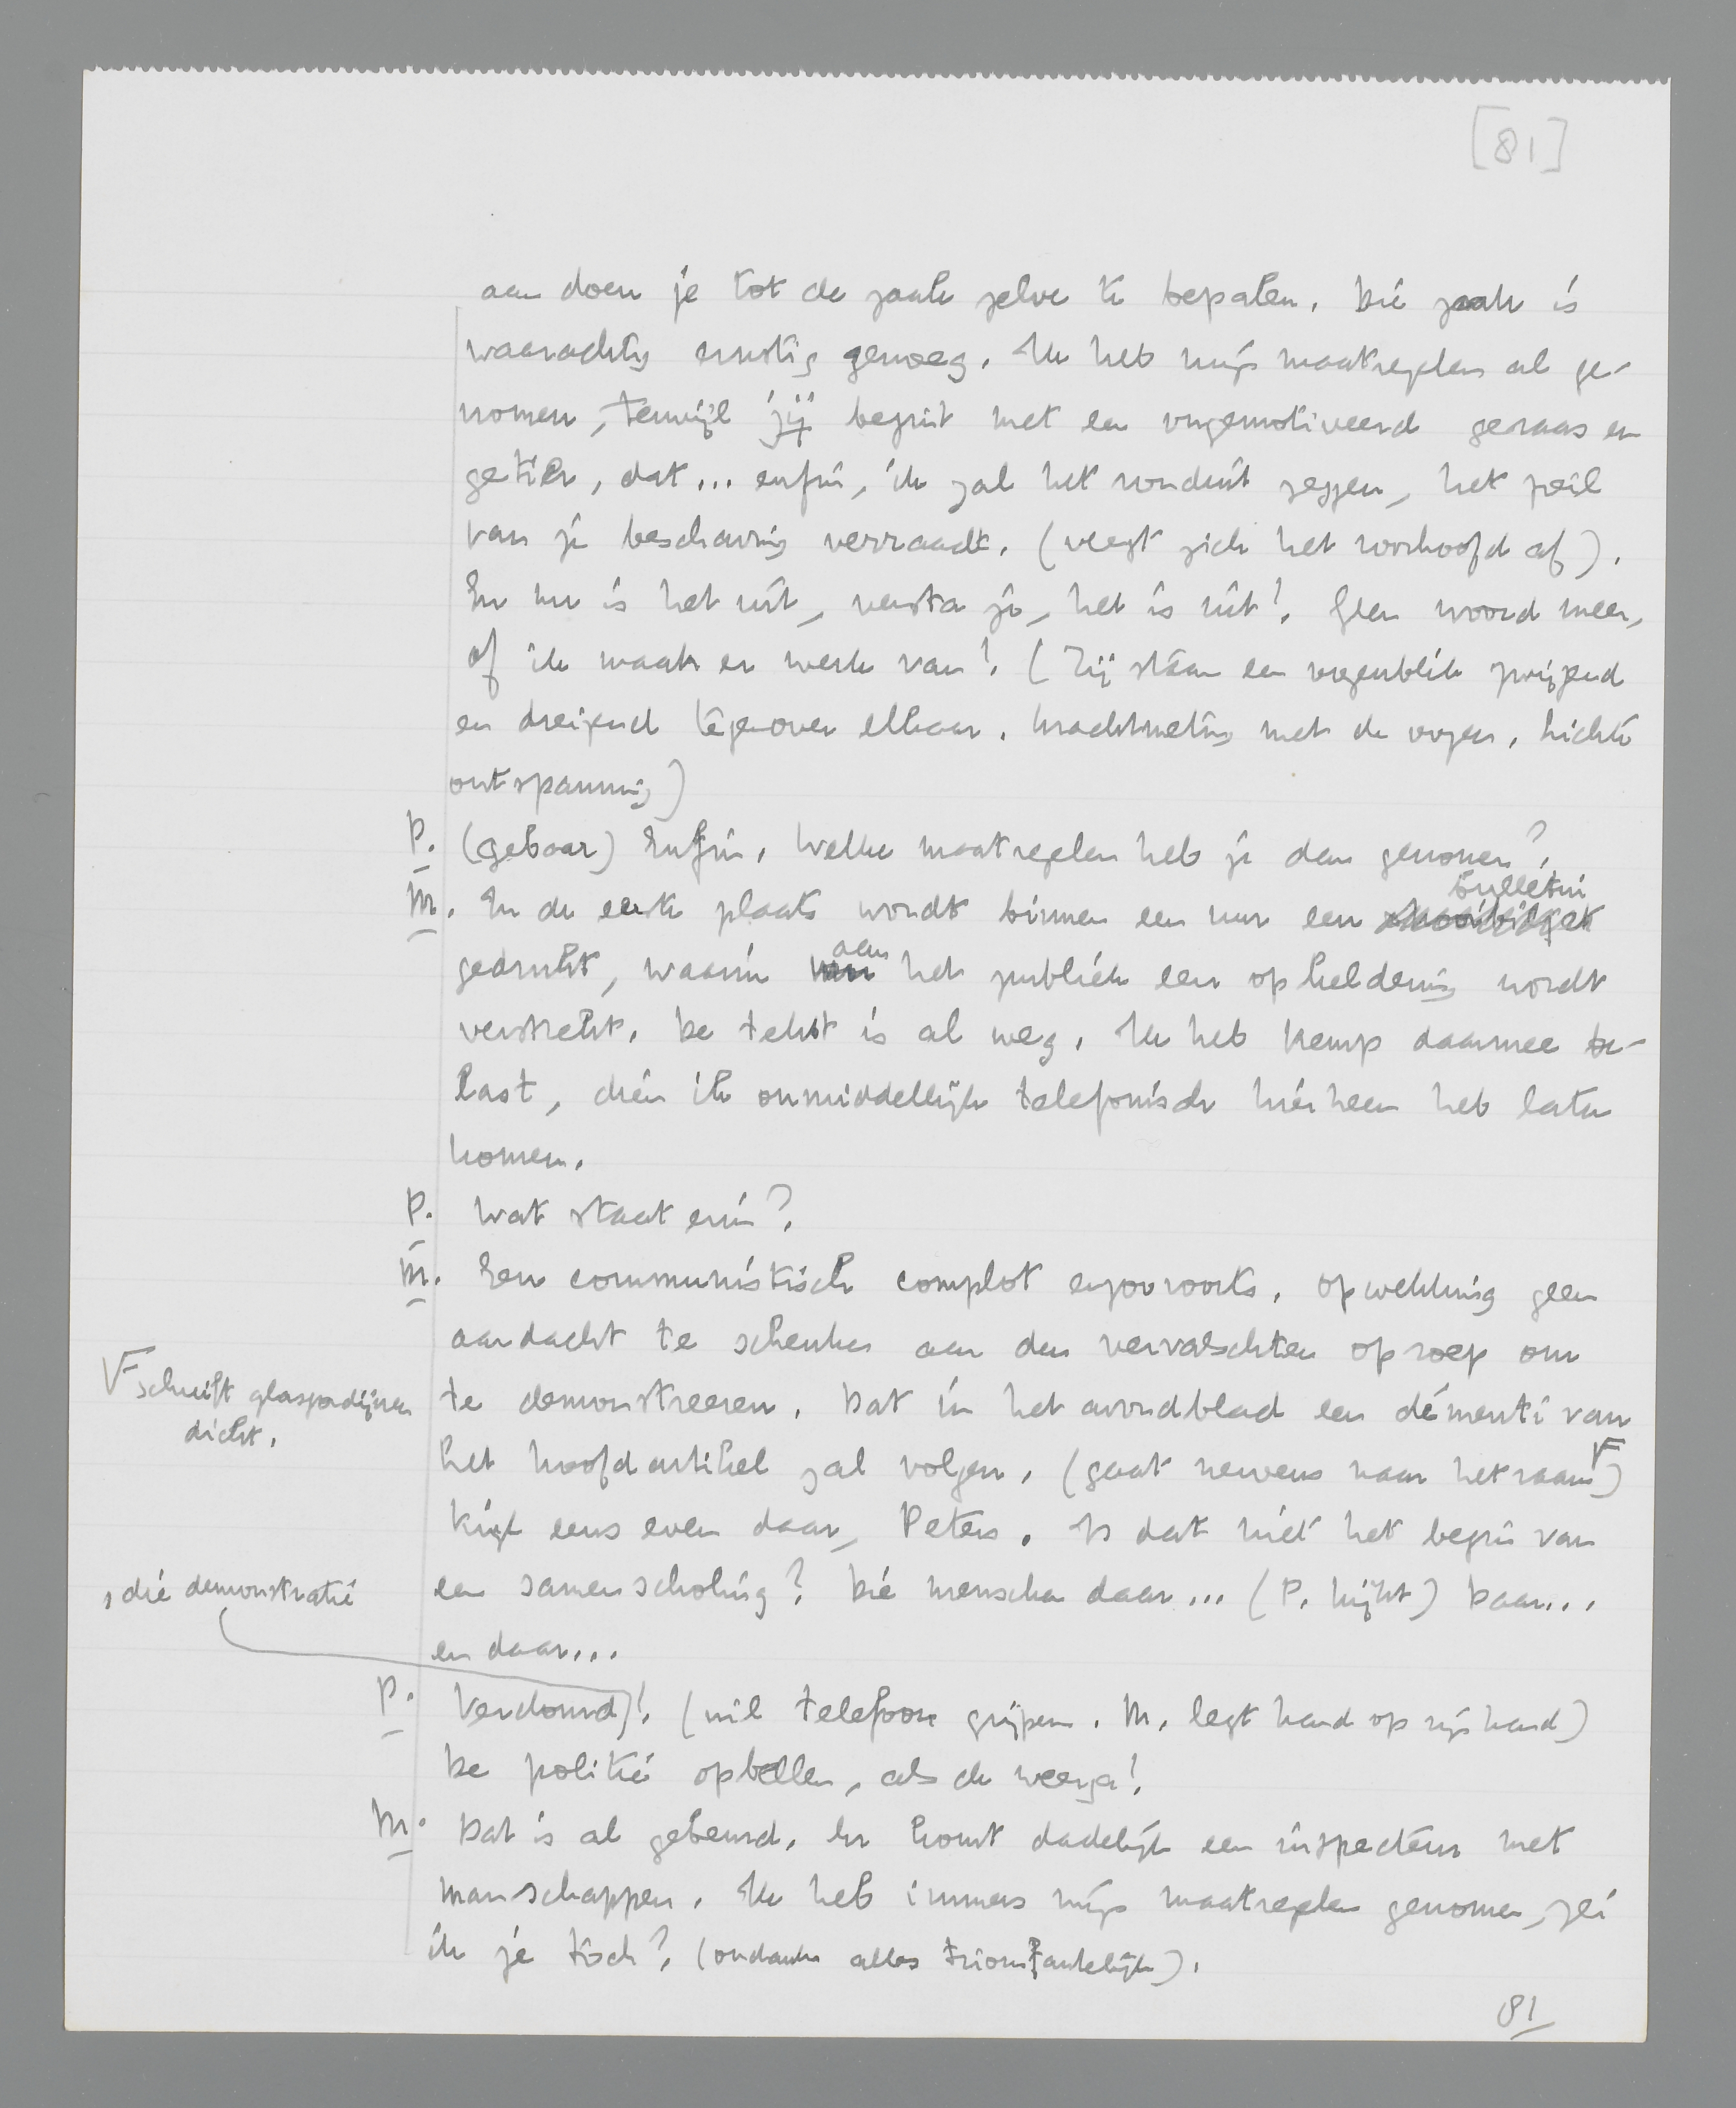 [81]
aan doen je tot de zaak zelve te bepalen. Die zaak is
waarachtig ernstig genoeg. Ik heb mijn maatregelen al ge-
nomen, terwijl jij begint met een ongemotiveerd geraas en
getier, dat... enfin, ik zal het ronduit zeggen, het peil
van je beschaving verraadt. (veegt zich het voorhoofd af).
En nu is het uit, versta je, het is uit! Geen woord meer,
of ik maak er werk van! (Zij staan een oogenblik zwijgend
en dreigend tegenover elkaar. Krachtmeting met de oogen. Lichte
ontspanning)
P. (gebaar) Enfin. Welke maatregelen heb je dan genomen?
M. In de eerste plaats wordt binnen een uur een bulletin
gedrukt, waarin aan het publiek een opheldering wordt
verstrekt. De tekst is al weg. Ik heb Kemp daarmee be-
last, dien ik onmiddellijk telefonisch hierheen heb laten
komen.
P. Wat staat erin?
M. Een communistisch complot enzoovoorts. Opwekking geen
aandacht te schenken aan den vervalschten oproep om
te demonstreeren. Dat in het avondblad een démenti van
het hoofdartikel zal volgen. (gaat nerveus naar het raam F)
F schuift glasgordijnen
dicht.
Kijk eens even daar, Peters. Is dat niet het begin van
een samenscholing? Die menschen daar... (P. kijkt) Daar...
en daar...
, die demonstratie
P. Verdomd! (wil telefoon grijpen. M. legt hand op zijn hand)
De politie opbellen, als de weerga!
M. Dat is al gebeurd. Er komt dadelijk een inspecteur met
manschappen. Ik heb immers mijn maatregelen genomen, zei
ik je toch? (ondanks alles triomfantelijk).
81